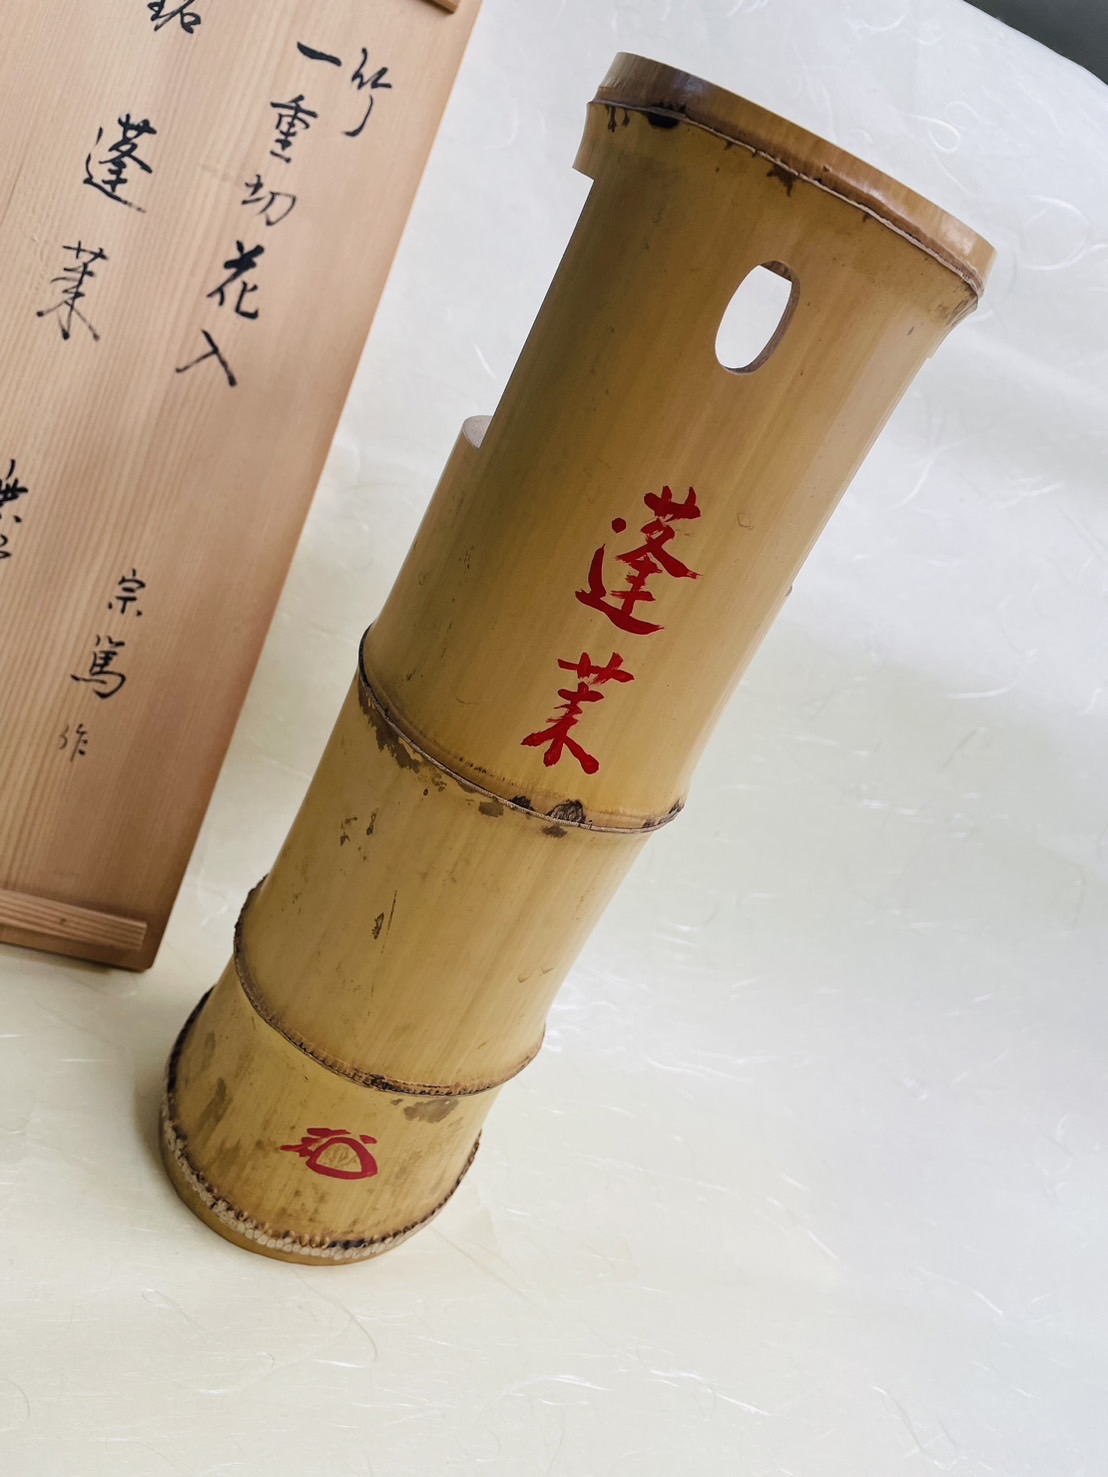 竹
一重切花入
銘
蓬莱
宗篤
作
蓬莱